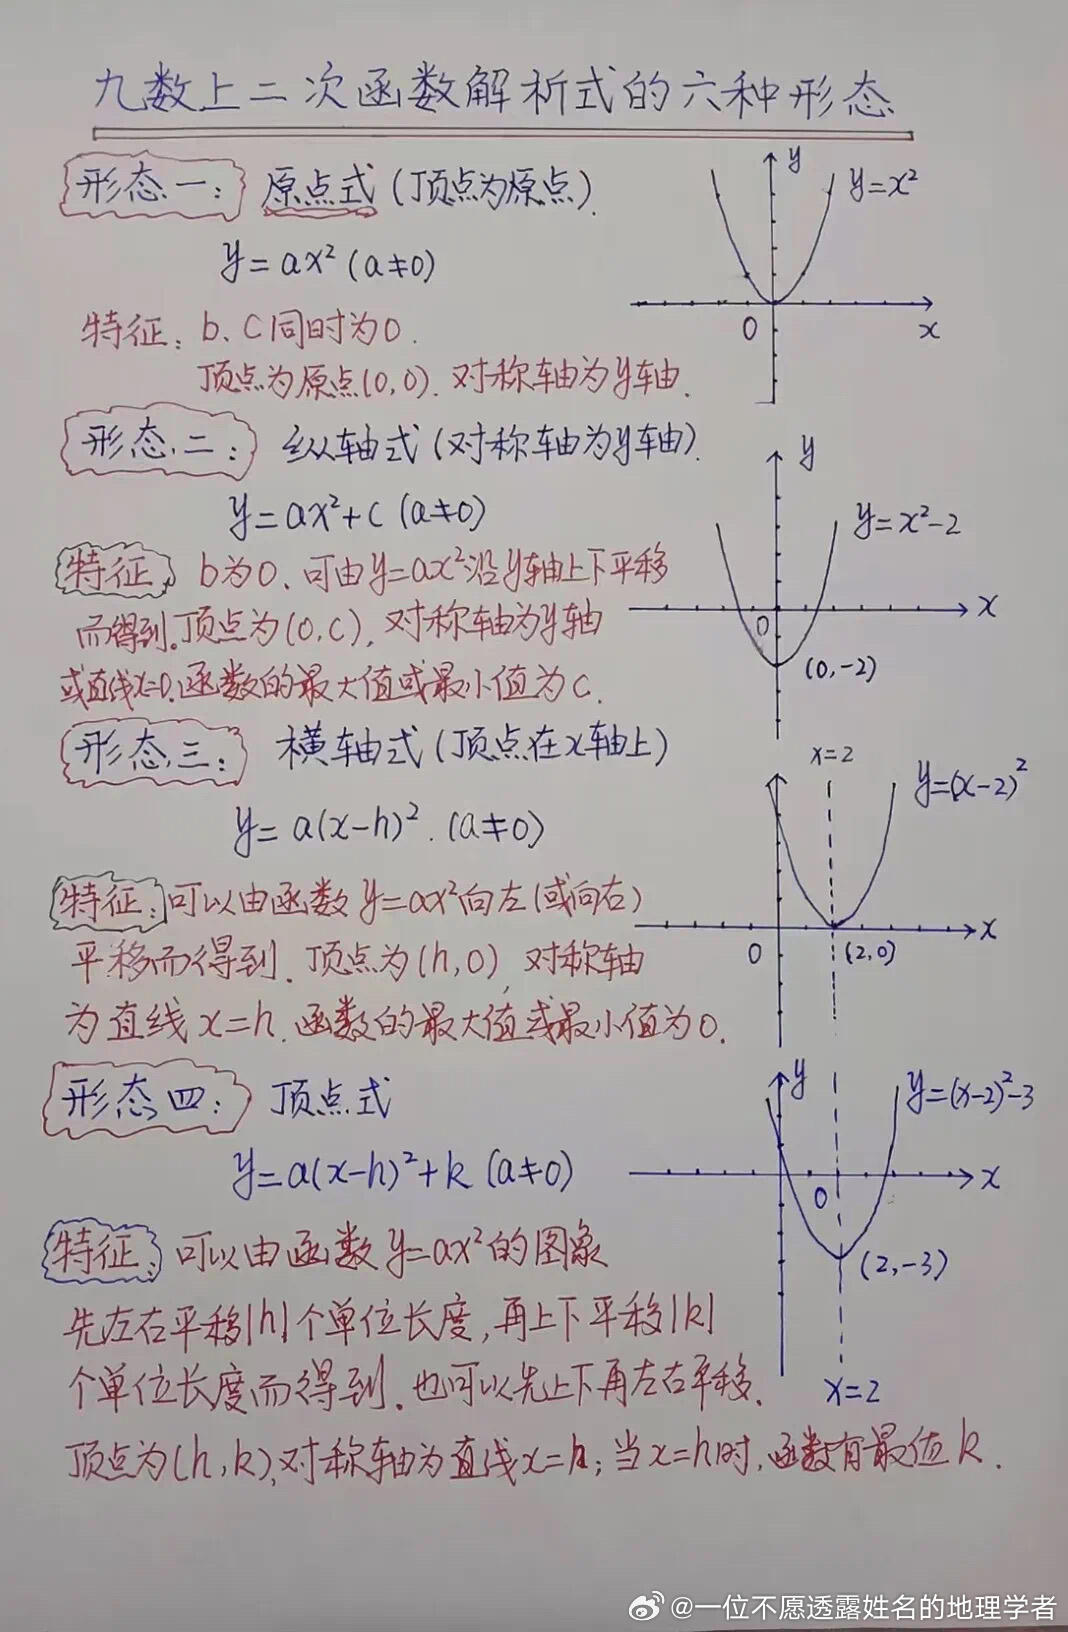 九数上二次函数解析式的六种形态
形态一: 原点式(顶点为原点).
y=ax²(a≠0)
特征: b、c同时为0.
顶点为原点(0,0). 对称轴为y轴.
y
y=x²
0
x
形态二: 纵轴式(对称轴为y轴).
y=ax²+c(a≠0)
特征 b为0. 可由y=ax²沿y轴上下平移
而得到.顶点为(0,c), 对称轴为y轴
或直线x=0.函数的最大值或最小值为c.
y
y=x²-2
x
0
(0,-2)
形态三: 横轴式(顶点在x轴上)
y=a(x-h)².(a≠0)
特征:可以由函数y=ax²向左(或向右)
平移而得到. 顶点为(h,0), 对称轴
为直线x=h.函数的最大值或最小值为0.
x=2
y=(x-2)²
x
0
(2,0)
形态四: 顶点式
y=a(x-h)²+k(a≠0)
特征: 可以由函数y=ax²的图象
先左右平移|h|个单位长度,再上下平移|k|
个单位长度而得到.也可以先上下再左右平移.
顶点为(h,k),对称轴为直线x=h;当x=h时,函数有最值k.
y
y=(x-2)²-3
x
0
(2,-3)
x=2
@一位不愿透露姓名的地理学者